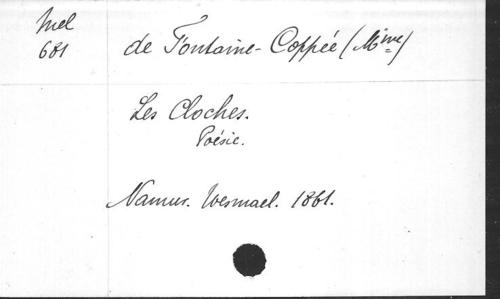 Mel
681
de Fontaine-Coppée (Mme)
Les Cloches.
Poésie.
Namur. Wesmael. 1861.